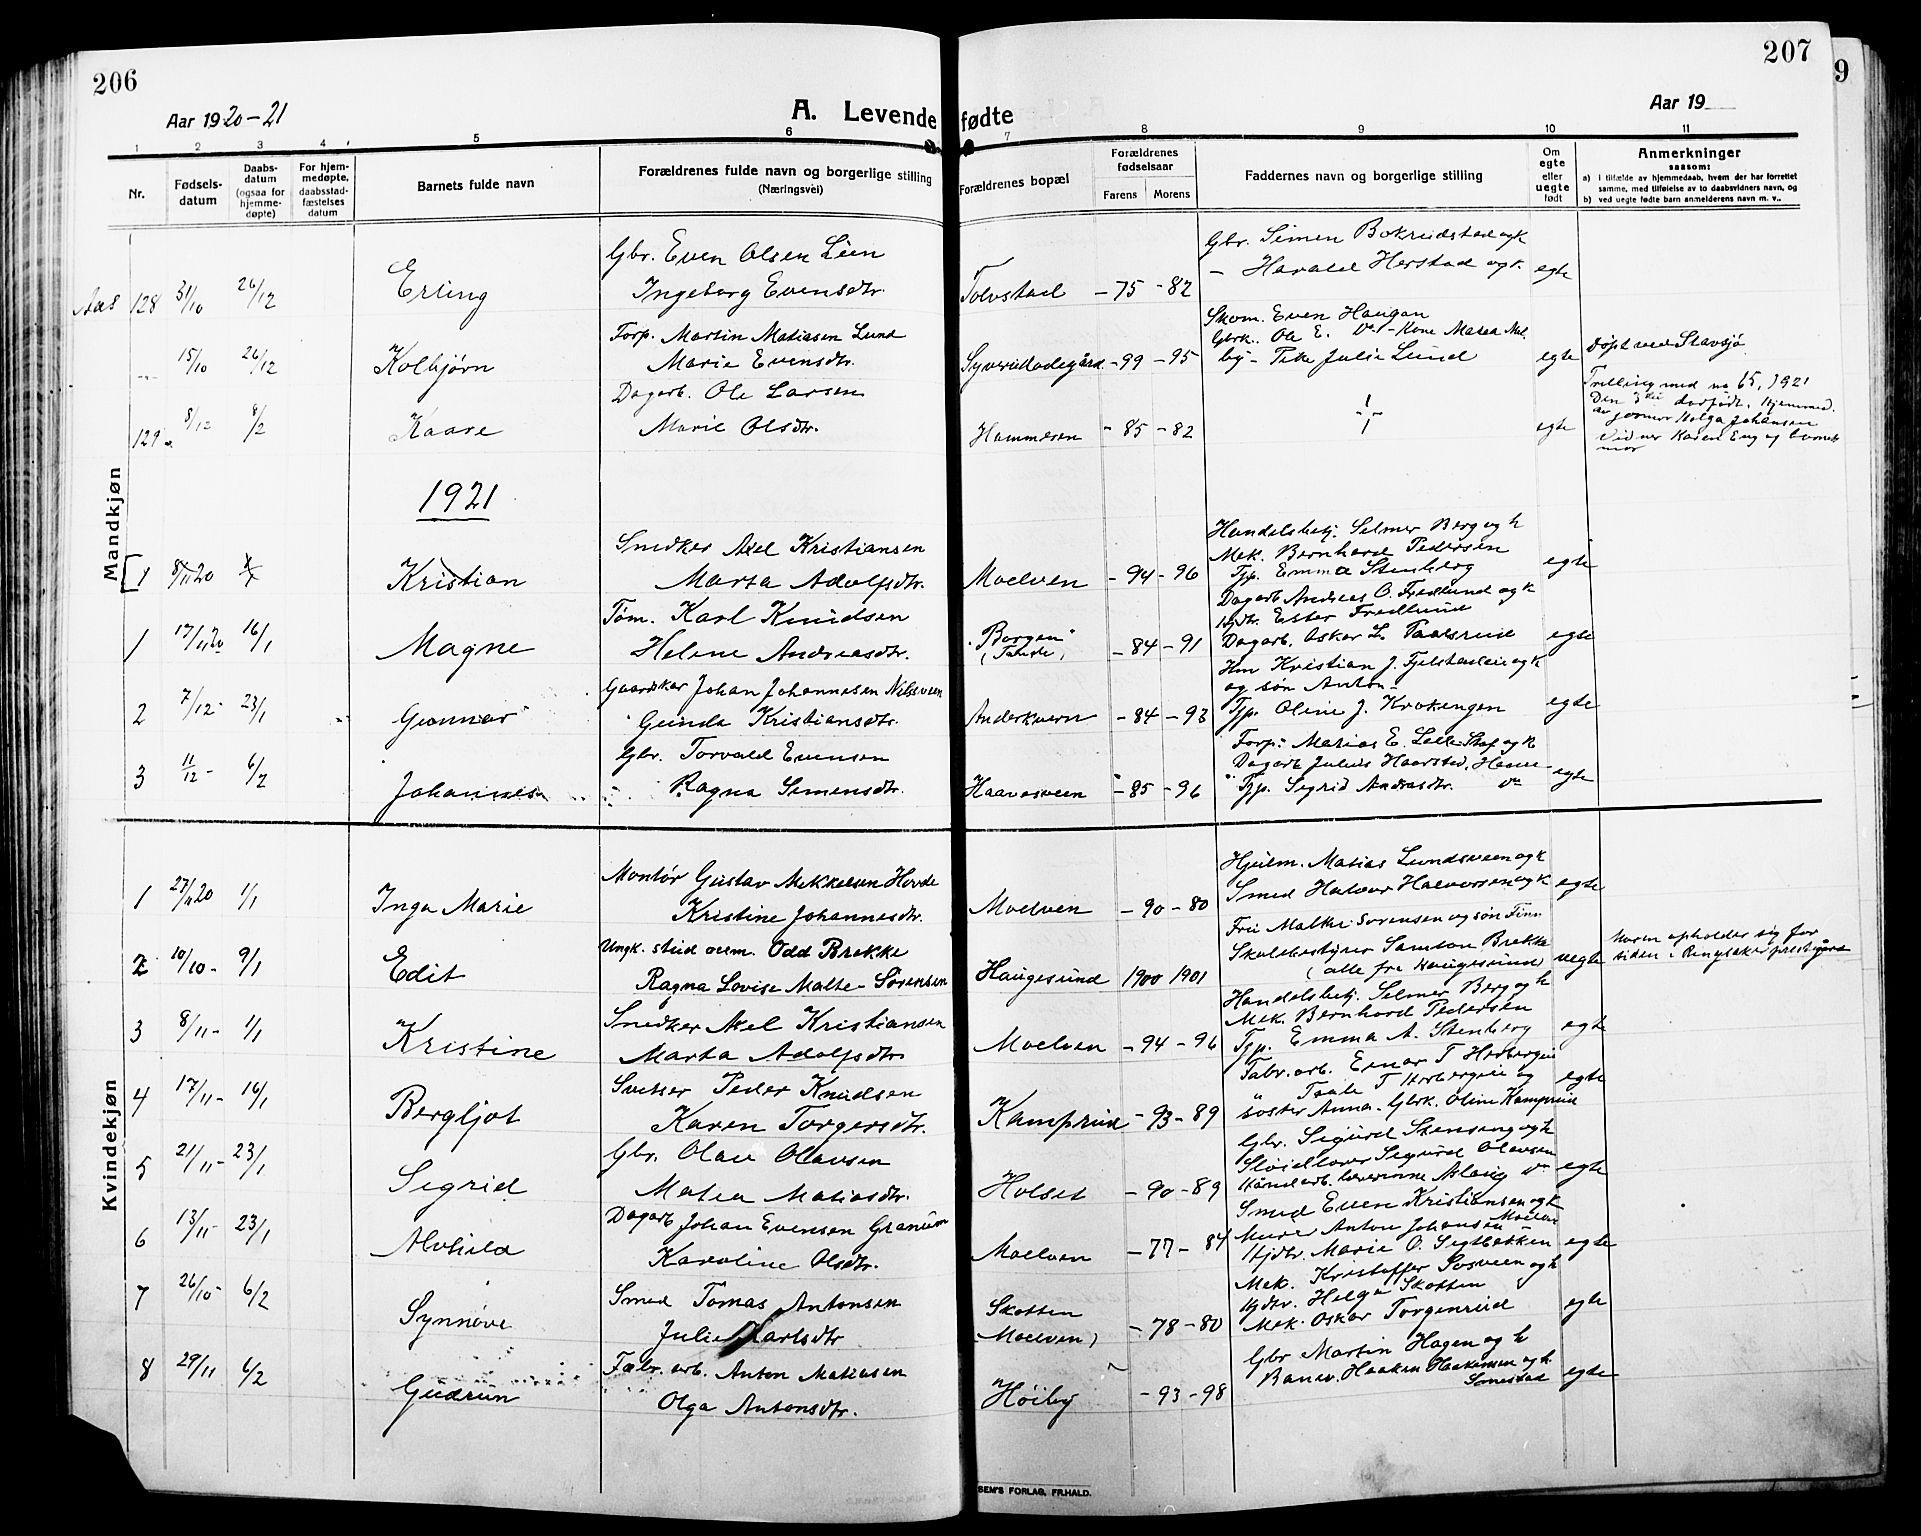 206
207
9
Aar 1920-21
A. Levende fødte
Aar 19
1 2 3 4 5 6 7 8 9 10 11
Nr.
Fødsels-
datum
Daabs-
datum
(ogsaa for
hjemme-
døpte)
For hjem-
medøpte,
daabsstad-
fæstelses
datum
Barnets fulde navn
Forældrenes fulde navn og borgerlige stilling
(Næringsvei)
Forældrenes bopæl
Forældrenes
fødselsaar
Farens Morens
Faddernes navn og borgerlige stilling
Om
egte
eller
uegte
født
Anmerkninger
saasom:
a) i tilfælde av hjemmedaab, hvem der har forrettet
samme, med tilføielse av to daabsvidners navn, og
b) ved uegte fødte barn anmelderens navn m. v..
Mandkjøn
Gbr. Even Olsen Lien
Gbr. Simen Bokreidstad og k
128 31/10 26/12 Erling Ingeborg Evensdtr. Tolvstad - 75 - 82 - Harald Herstad og k. egte
Torp. Martin Matiasen Lund
Skom. Even Haugan
Gbrk. Ole E. Do - Kone Matea Mel
15/10 26/12 Kolbjørn Marie Evensdtr. - 99 - 95 by - Pike Julie Lund egte Døpt ved Stavsjø
Dagarb. Ole Larsen
Trilling med no 65, 1921
129 8/12 8/2 Kaare Marie Olsdtr. Hammeren - 85 - 82 egte
av jormor Helga Johansen
Vidner Karen Eng og barnets
mor
1921
Snedker Axel Kristiansen
Handelsbetj. Selmer Berg og k
Mek. Bernhard Pedersen
1 8/11 20 Kristian Marta Adolfsdtr. Moelven - 94 - 96 Tjp. Emma Stenberg egte
Tøm. Karl Knudsen
Dagarb Andreas O. Fredlund og k
Hjdtr. Ester Fredlund
1 17/11 20 16/1 Magne Helene Andreasdtr. "Borgen" - 84 - 91 Dagarb. Oskar L. Taalsrud egte
Gaardskar Johan Johannesen Nilsveen
Hm Kristian J. Fjelstadlie og k
og søn Anton -
2 7/12 - 23/1 Gunnar Gunda Kristiansdtr. Anderkvern - 84 - 93 Tjp. Oline J. Krokengen egte
Gbr. Torvald Evensen
Dagarb Julius Haarstad, Hanne
3 11/12 - 6/2 Johannes Ragna Simensdtr. Haavesveen - 85 - 96 Tjp. Sigrid Andreasdtr. do egte
Kvindekjøn
Montør Gustav Mikkelsen Hovde
Hjulm. Matias Lundsveen og k
1 27/11 20 1/1 Inga Marie Kristine Johannesdtr. Moelven - 90 - 80 Smed Halvor Halvorsen og k egte
Ungk. stud. oecm. Odd Brekke
Fru Malthe Sørensen og søn Finn
Skolebestyrer Samson Brekke
2 10/10 - 9/1 Edit Ragna Lovise Malte-Sørensen Haugesund 1900 1901 (alle fra Haugesund) uegte
Moren opholder sig for
tiden i Ringsaker prestegård
Snedker Axel Kristiansen
Handelsbetj. Selmer Berg og k
Mek. Bernhard Pedersen
3 8/11 - 1/1 Kristine Marta Adolfsdtr Moelven - 94 - 96 Tjp. Emma A. Stenberg egte
Sveiser Peder Knudsen
Fabr. arb. Einar T Horbergeie
" Traale T Horbergeie og
4 17/11 - 16/1 Bergljot Karen Torgersdtr. Kamprud - 93 - 89 søster Anna. Gbrk. Oline Kamprud egte
Gbr. Olav Olavsen
Gbr. Sigurd Stenseng og k
Sløidlærer Sigurd Olavsen
5 21/11 - 23/1 Sigrid Matea Matiasdtr. Holset - 90 - 89 Håndarb. lærerinne Aslaug do egte
Dagarb Johan Evensen Granum
Smed Even Kristiansen og k
Murer Anton Johansen Moelven
6 13/11 - 23/1 Alvhild Karoline Olsdtr. Moelven - 77 - 84 Hjdtr. Marie O. Sigtbakken egte
Smed Tomas Antonsen
Mek. Kristoffer Sosveen og k
Hjdtr. Helga Skotten
7 26/10 - 6/2 Synnøve Julie Karlsdtr Skotten (Moelven) - 78 - 80 Mek. Oskar Torgenrud egte
Fabr. arb. Anton Matiasen
Gbr Martin Hagen og k
8 29/11 6/2 Gudrun Olga Antonsdtr. Høiby - 93 - 98 Banev. Haaken Haakensen og k. egte
Smestad
SEM'S FORLAG, FR.HALD.